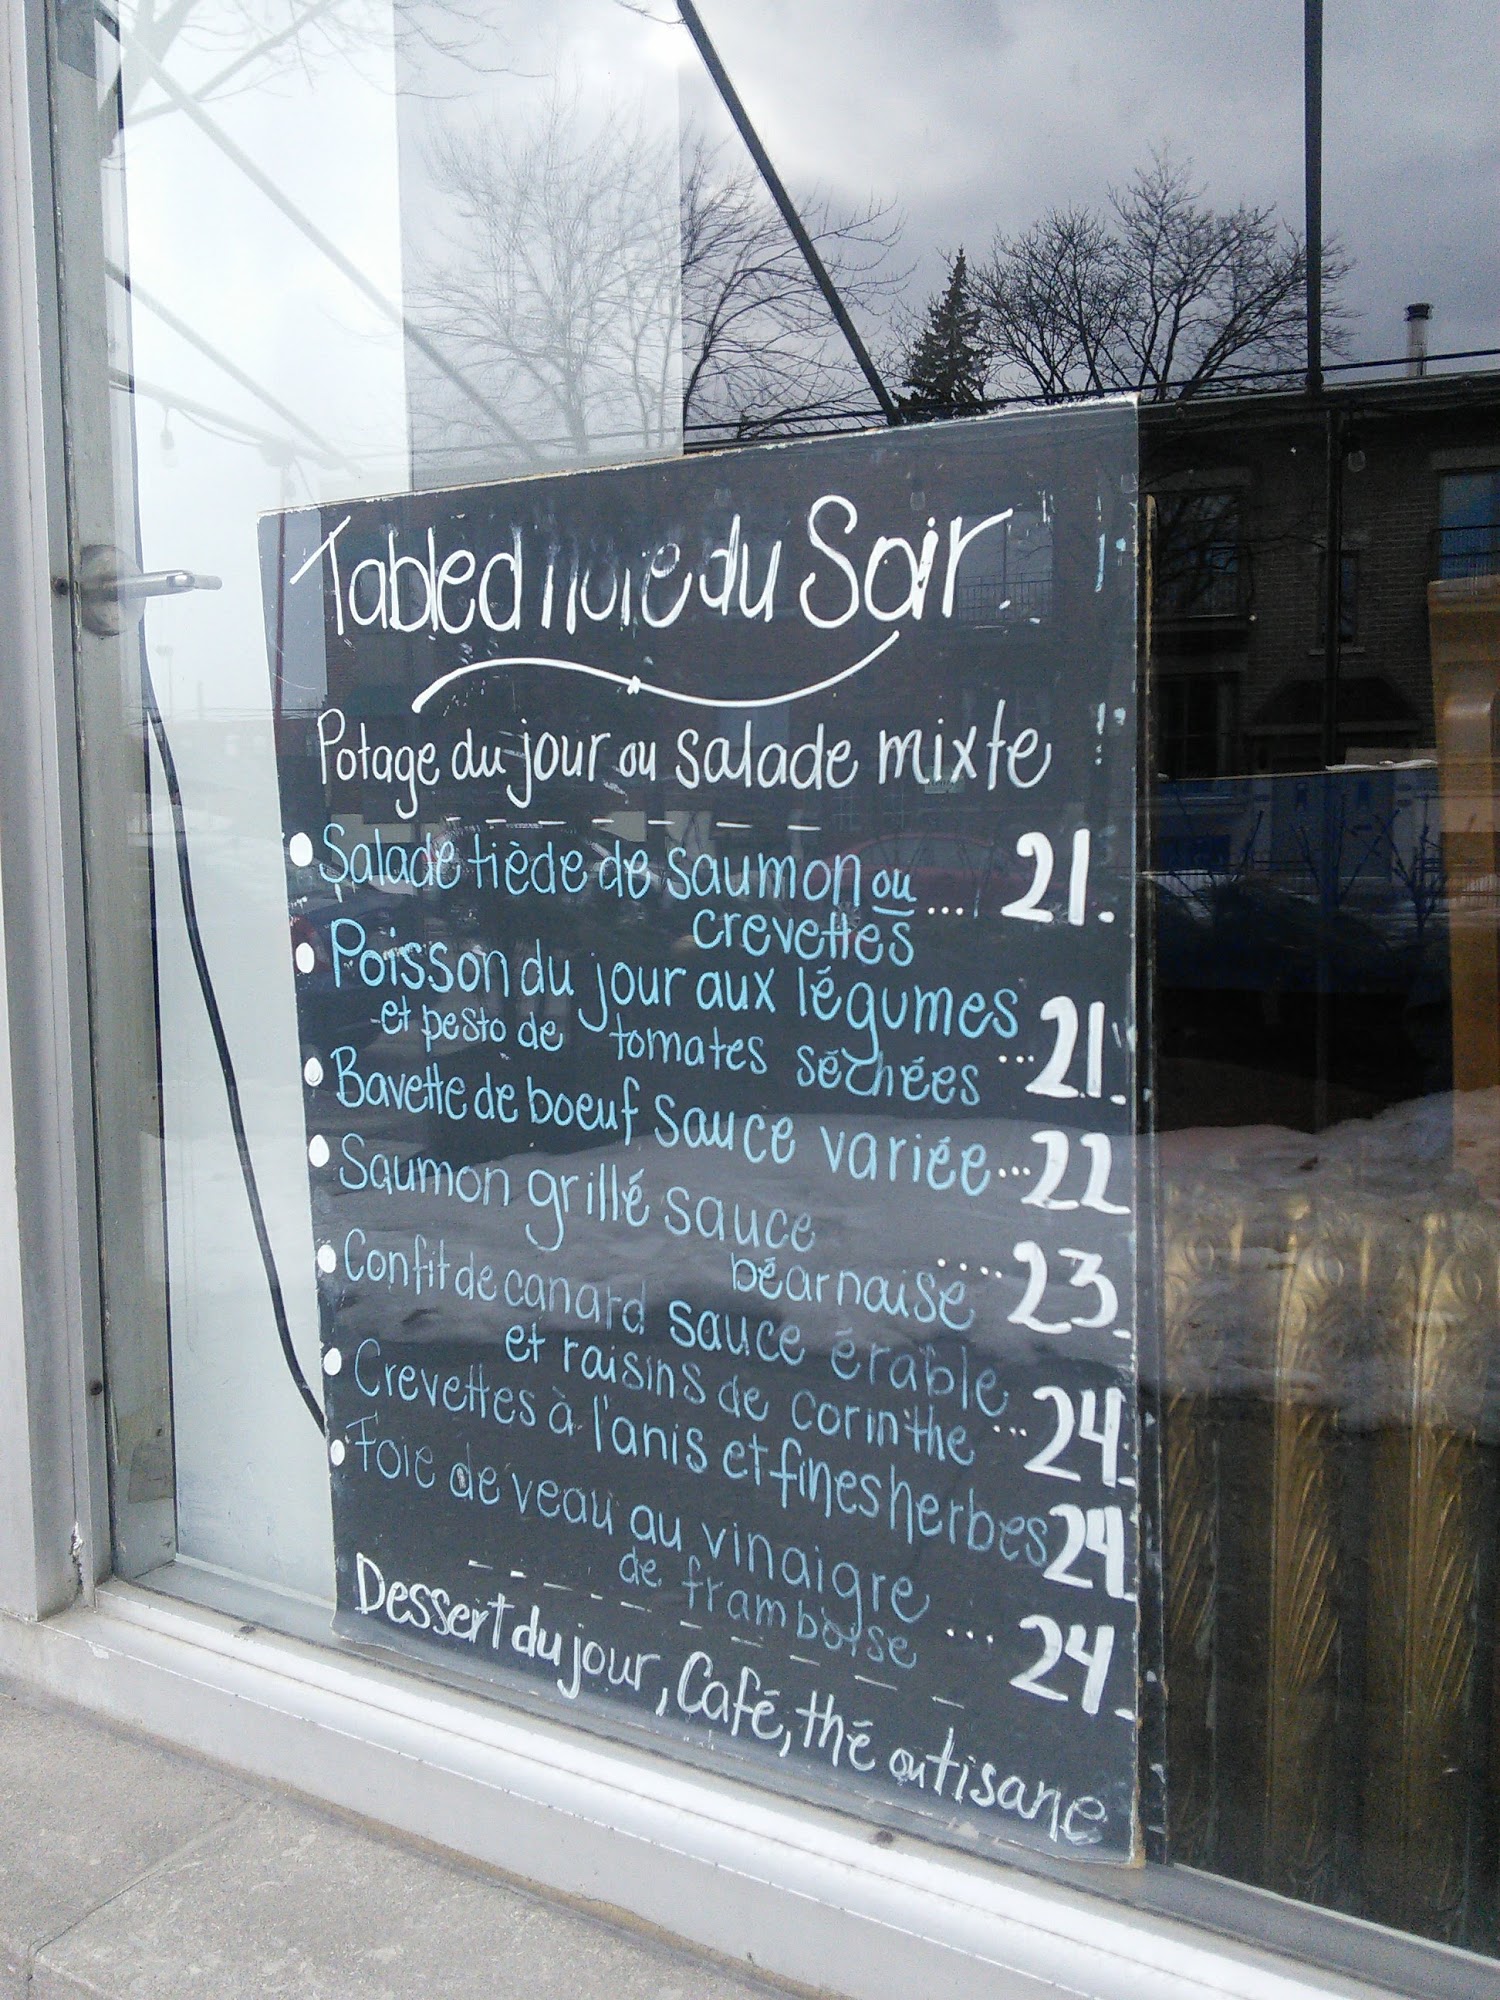 Table d'hôte du Soir.
Potage du jour ou salade mixte
Salade tiède de saumon ou ... 21.
crevettes
Poisson du jour aux légumes
et pesto de tomates séchées ... 21.
Bavette de boeuf sauce variée ... 22
Saumon grillé sauce
béarnaise .... 23.
Confit de canard sauce érable
et raisins de corinthe ... 24.
Crevettes à l'anis et fines herbes 24.
Foie de veau au vinaigre
de framboise ... 24.
Dessert du jour, Café, thé ou tisane